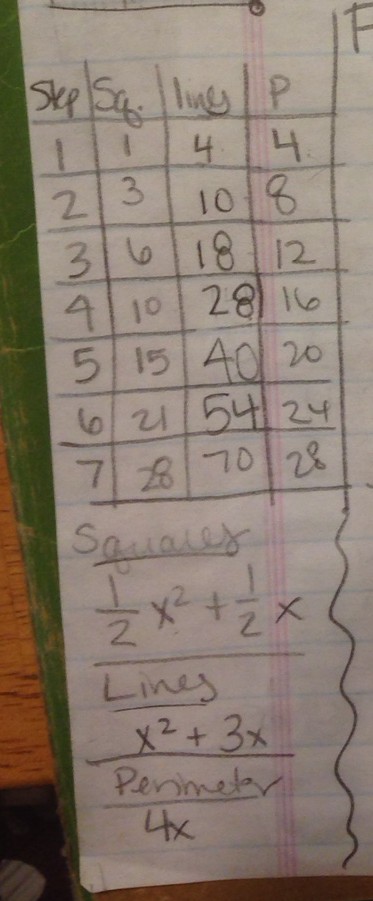 Step Sq. lines P
1 1 4 4
2 3 10 8
3 6 18 12
4 10 28 16
5 15 40 20
6 21 54 24
7 28 70 28
Squares
1/2 x² + 1/2 x
Lines
x² + 3x
Perimeter
4x